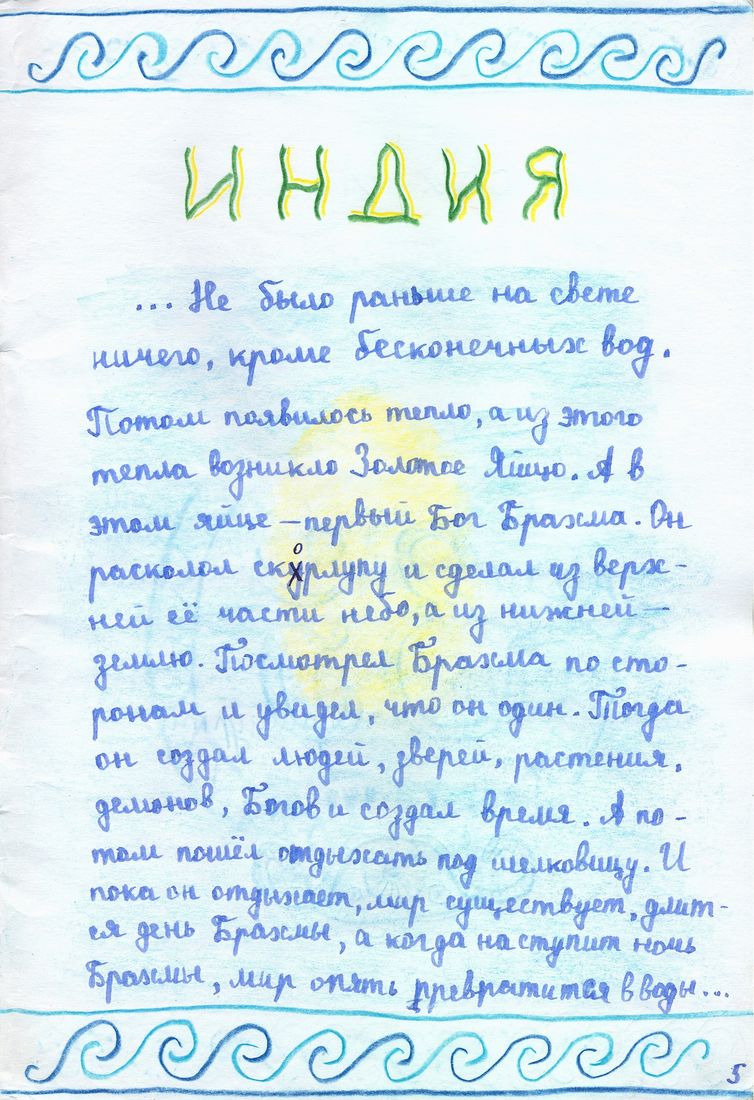 ИНДИЯ
... Не было раньше на свете
ничего, кроме бесконечных вод.
Потом появилось тепло, а из этого
тепла возникло Золотое Яйцо. А в
этом яйце – первый Бог Брахма. Он
расколол скорлупу и сделал из верх-
ней её части небо, а из нижней –
землю. Посмотрел Брахма по сто-
ронам и увидел, что он один. Тогда
он создал людей, зверей, растения,
демонов, Богов и создал время. А по-
том пошёл отдыхать под шелковицу. И
пока он отдыхает, мир существует, длит-
ся день Брахмы, а когда наступит ночь
Брахмы, мир опять превратится в воды...
5